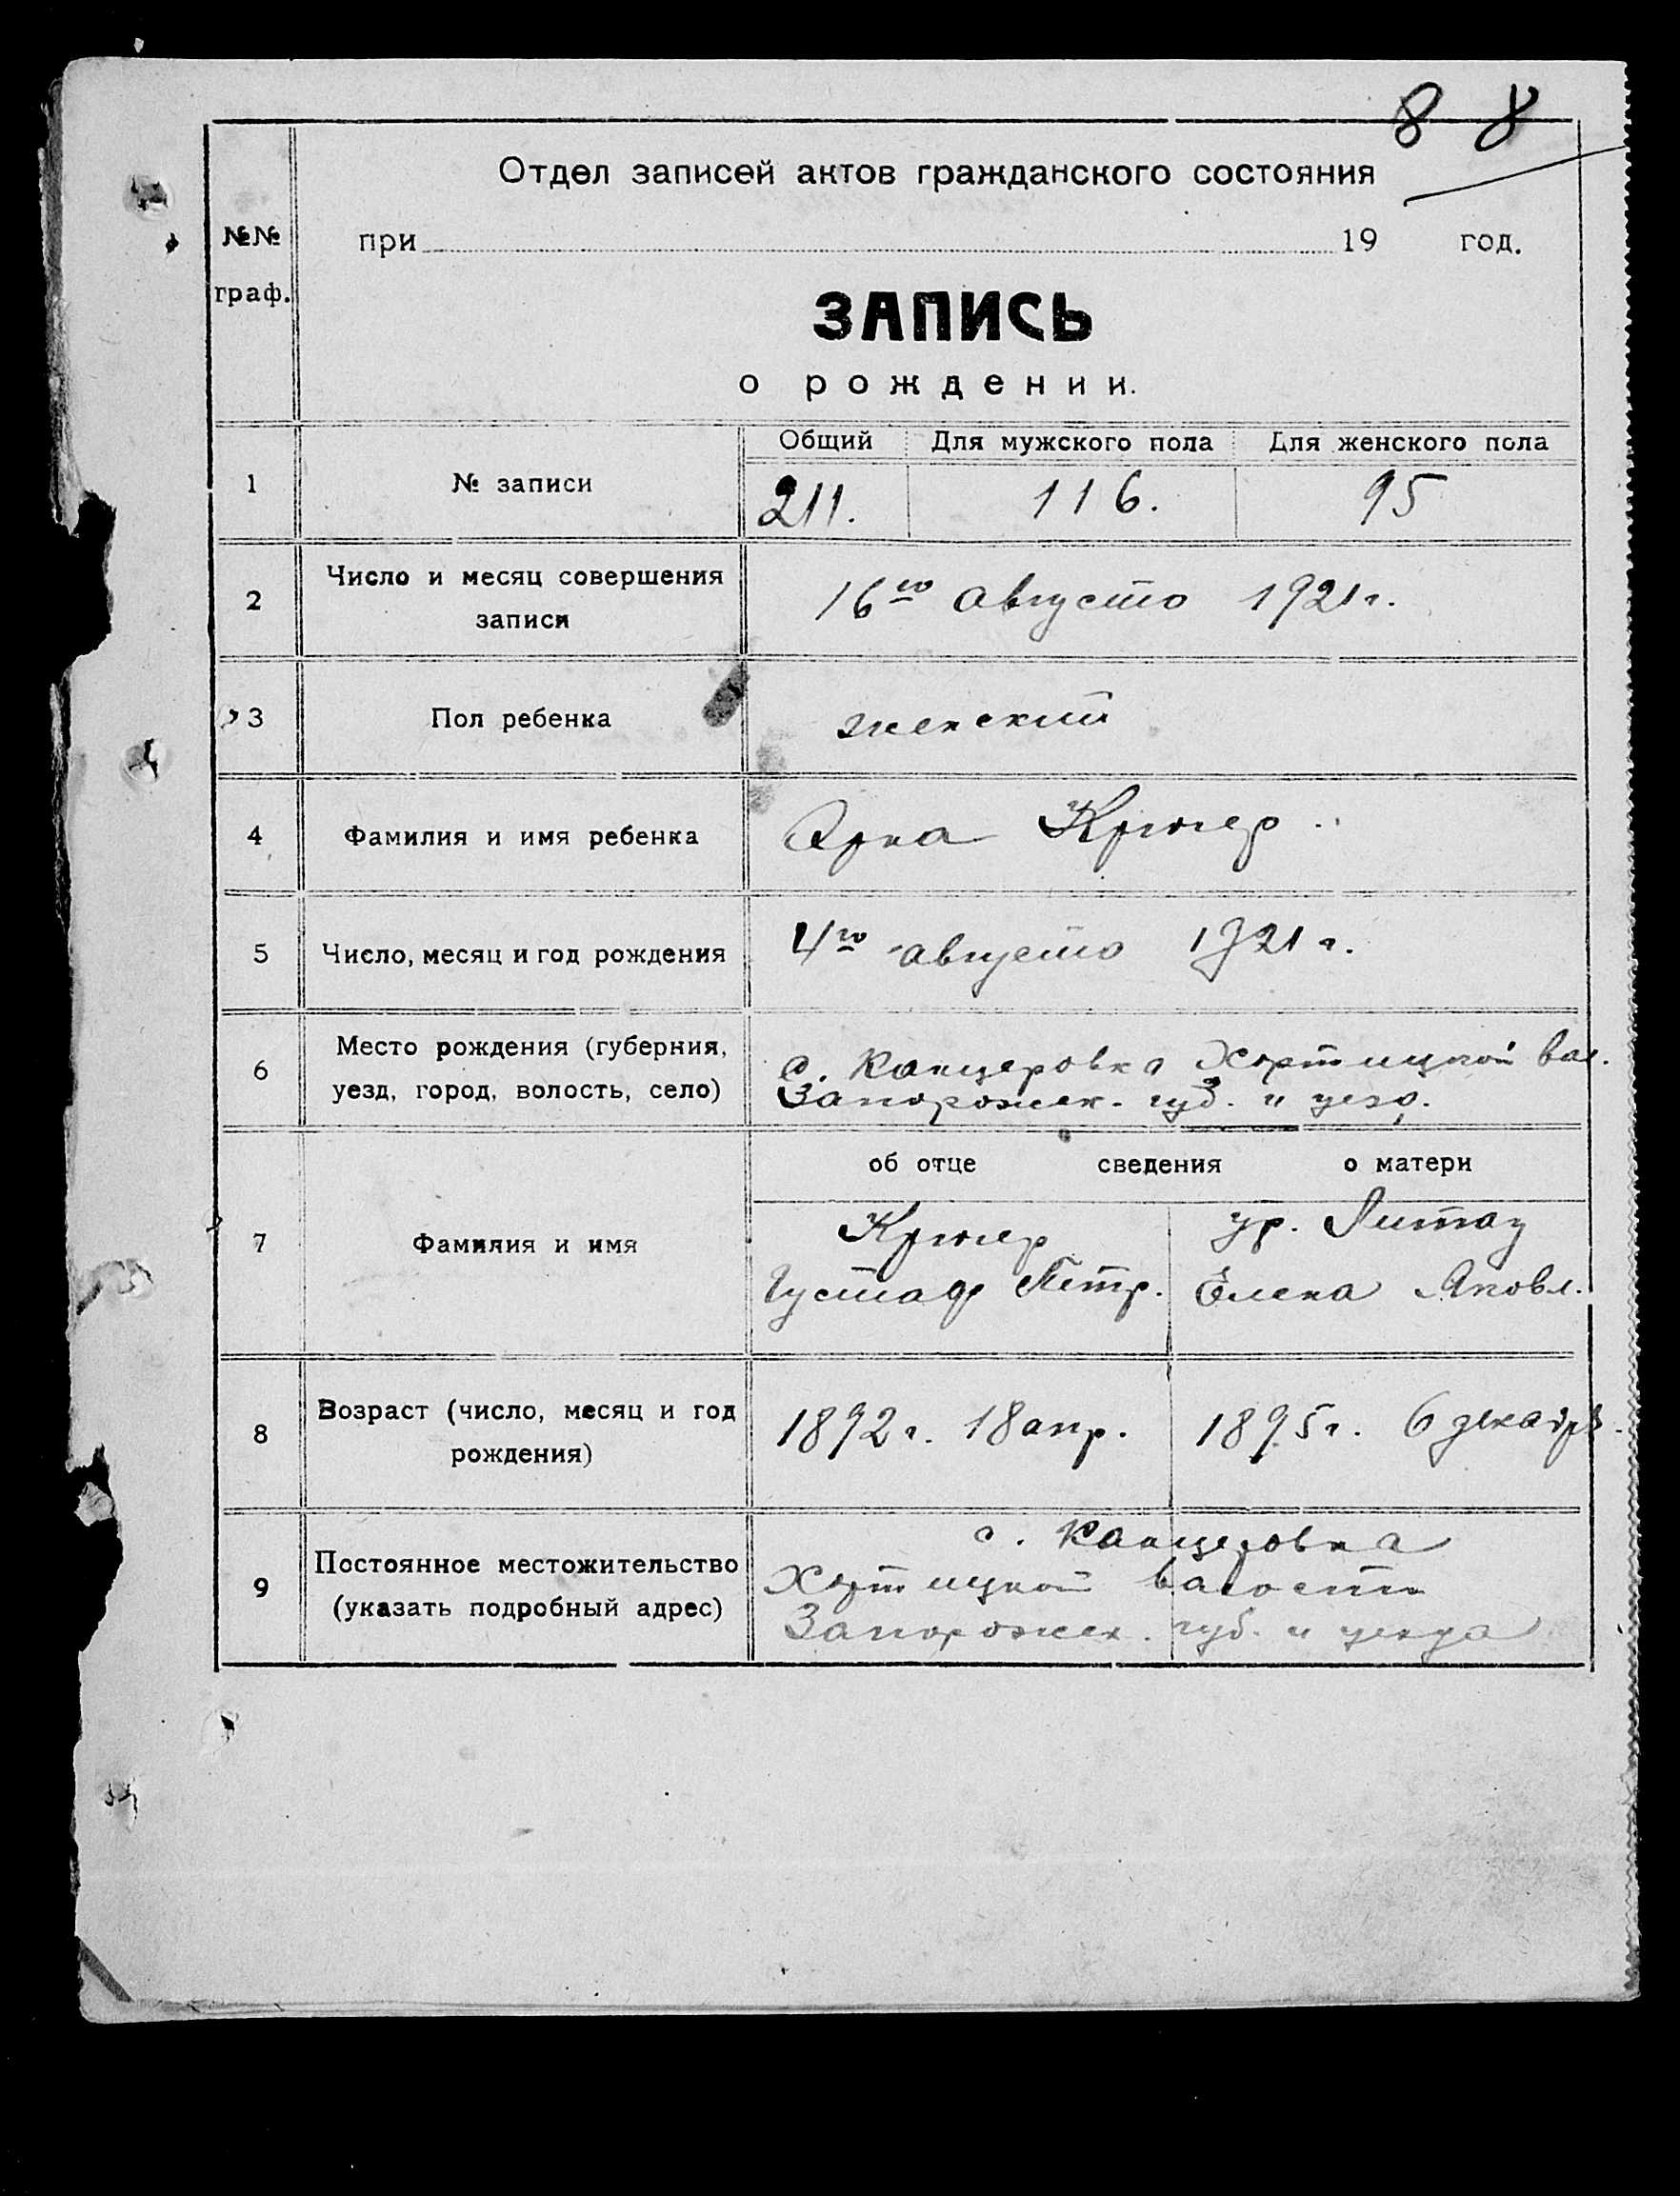 8 8
Отдел записей актов гражданского состояния
№№ граф.
при 19 год.
ЗАПИСЬ
о рождении.
Общий Для мужского пола Для женского пола
1 № записи 211. 116. 95
2 Число и месяц совершения записи 16го августа 1921 г.
3 Пол ребенка женский
4 Фамилия и имя ребенка Эрна Крюгер
5 Число, месяц и год рождения 4го августа 1921 г.
6 Место рождения (губерния, уезд, город, волость, село) с. Канцеровка Хортицкой вол.
Запорожск. губ. и уезд.
об отце сведения о матери
7 Фамилия и имя Крюгер ур. Литау
Густаф Петр. Елена Яковл.
8 Возраст (число, месяц и год рождения) 1892 г. 18 апр. 1895 г. 6 декабря.
9 Постоянное местожительство (указать подробный адрес) с. Канцеровка
Хортицкой волости
Запорожск. губ. и уезда